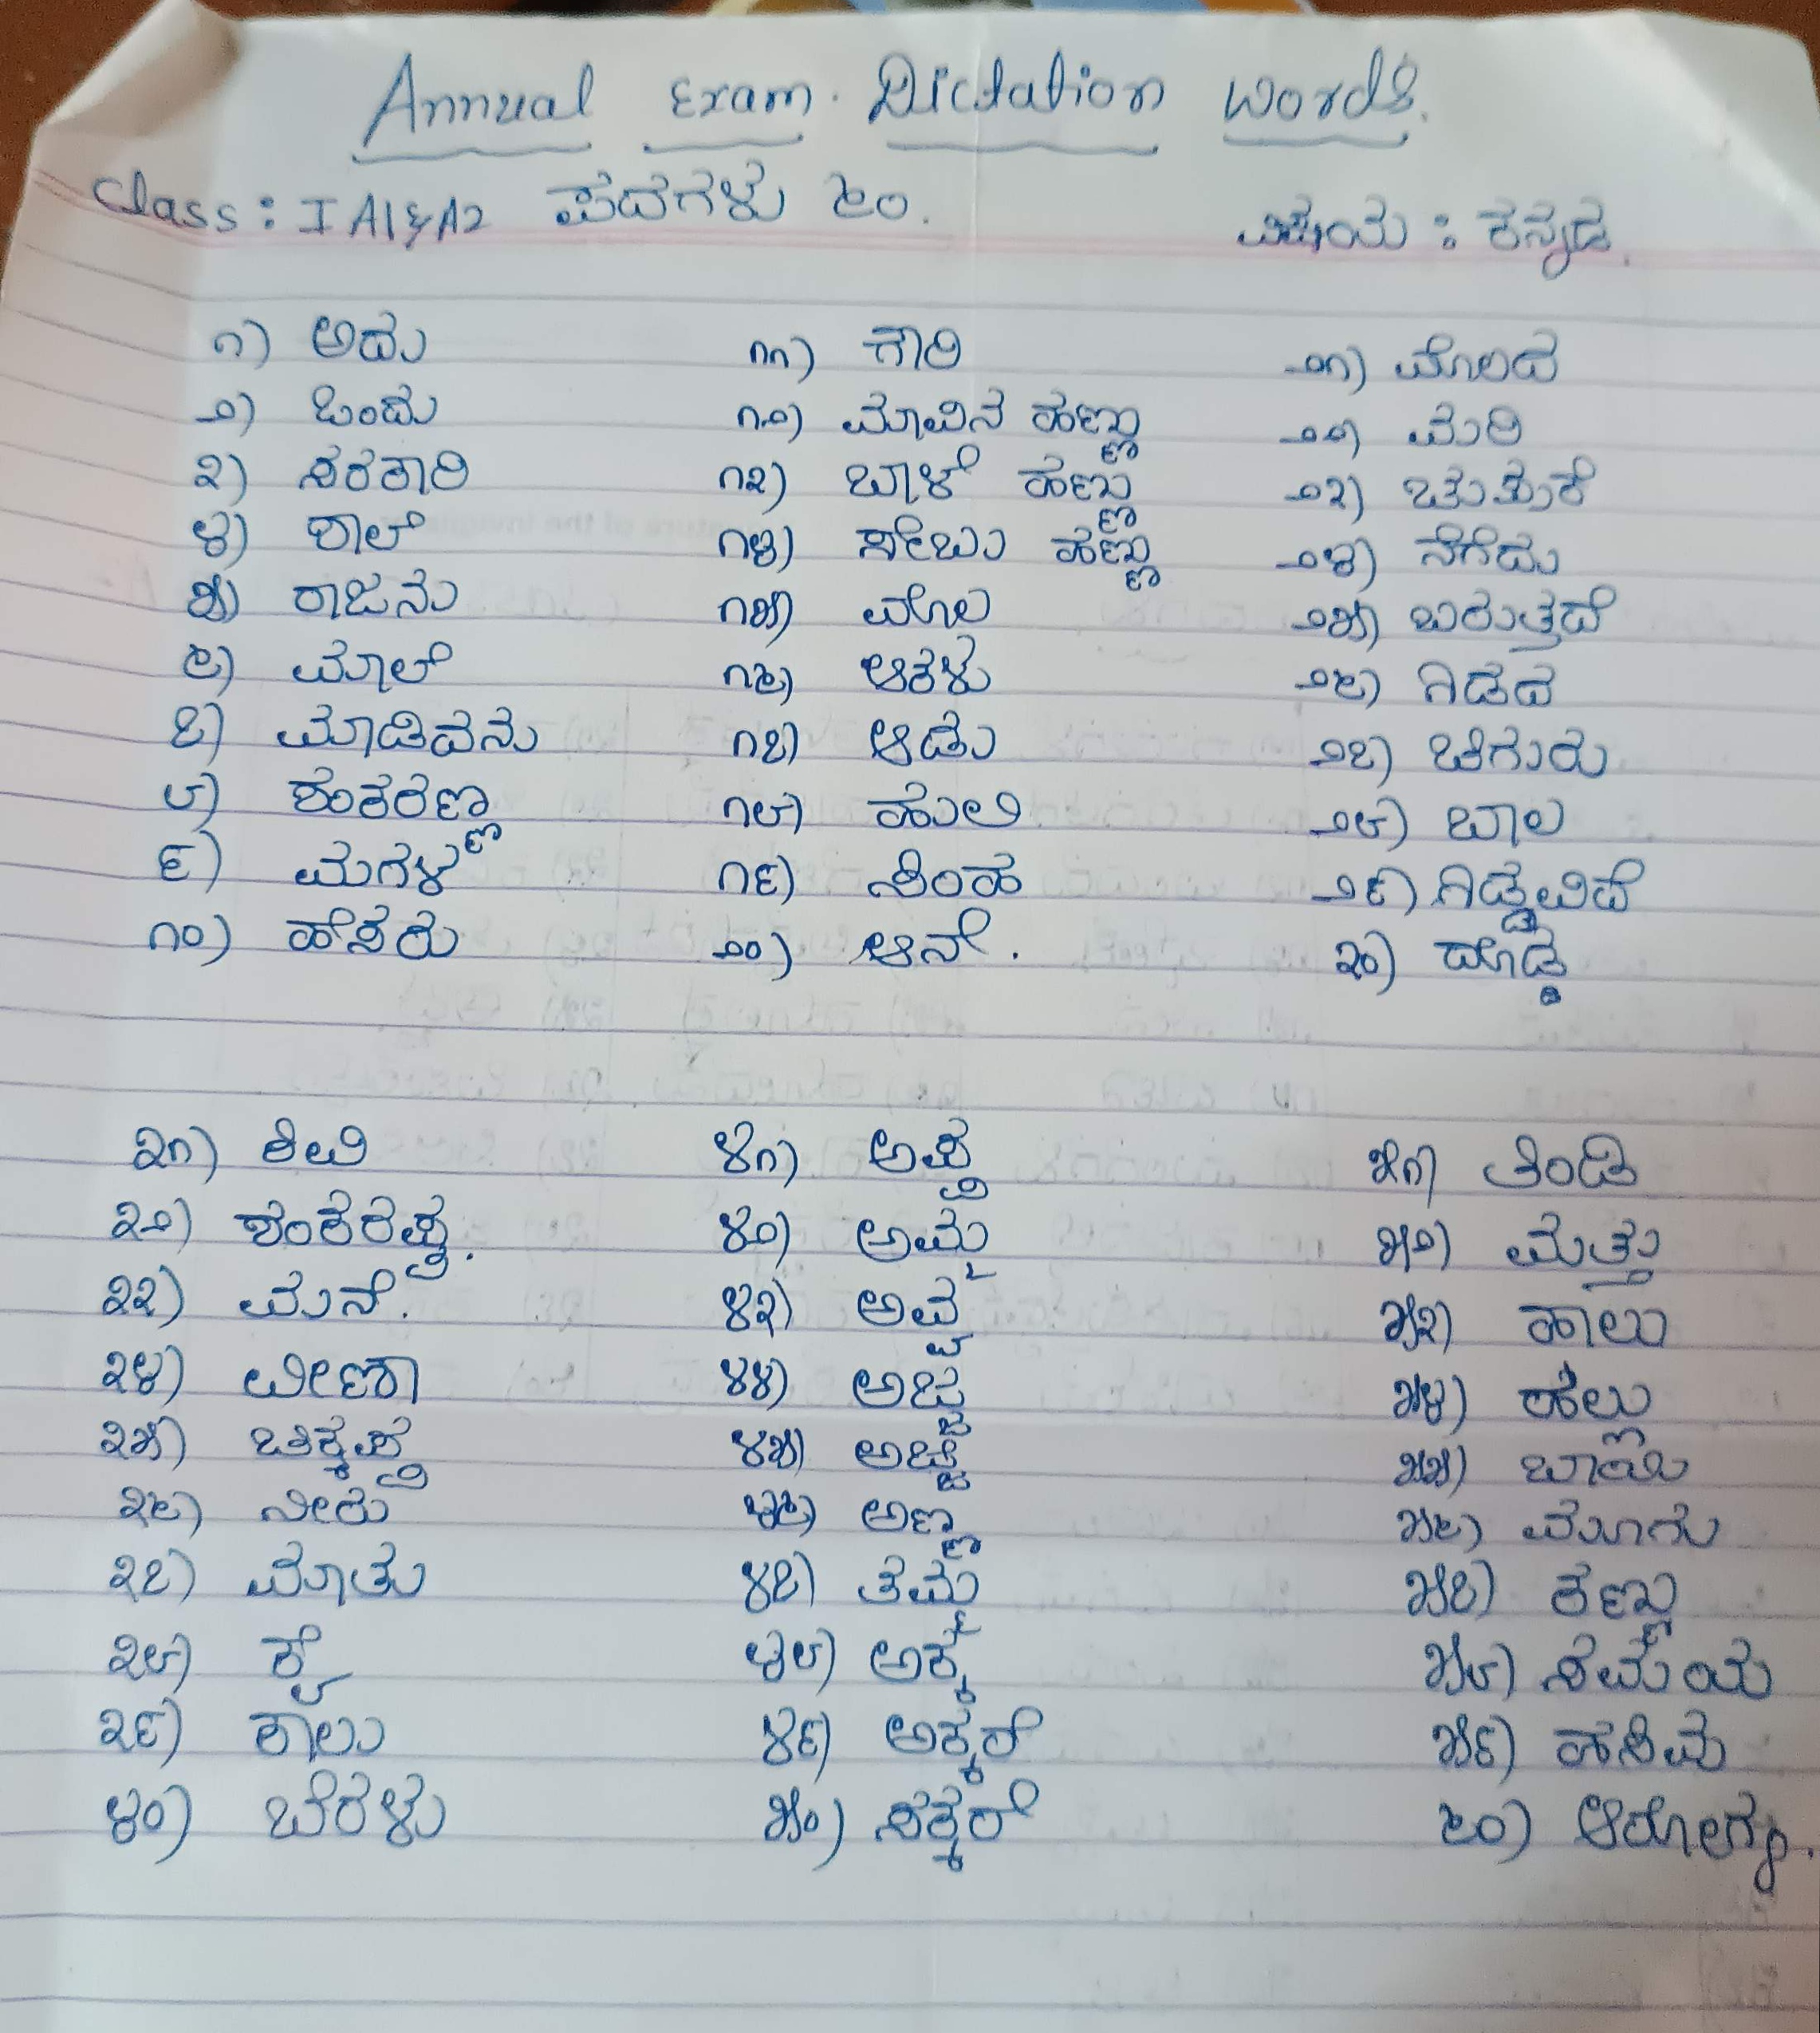 Annual Exam Dictation Words.
Class: I A1&A2 ಪದಗಳು ೬೦. ವಿಷಯ : ಕನ್ನಡ.
೧) ಅದು ೧೧) ಗೌರಿ ೨೧) ಮೊಲದ
೨) ಒಂದು ೧೨) ಮಾವಿನ ಹಣ್ಣು ೨೨) ಮರಿ
೩) ಸರಕಾರಿ ೧೩) ಬಾಳೆ ಹಣ್ಣು ೨೩) ಚತುತುರೆ
೪) ಶಾಲೆ ೧೪) ಸೇಬು ಹಣ್ಣು ೨೪) ನೆಗೆದು
೫) ರಾಜನು ೧೫) ಮೊಲ ೨೫) ಬರುತ್ತದೆ
೬) ಮಾಲೆ ೧೬) ಆಕಳು ೨೬) ಗಿಡದ
೭) ಮಾಡಿದನು ೧೭) ಆಡು ೨೭) ಚಿಗುರು
೮) ಶಂಕರಣ್ಣ ೧೮) ಹುಲಿ ೨೮) ಬಾಲ
೯) ಮಗಳ ೧೯) ಸಿಂಹ ೨೯) ಗಿಡ್ಡವಿದೆ
೧೦) ಹೆಸರು ೨೦) ಆನೆ. ೩೦) ದೊಡ್ಡ
೩೧) ಕಿವಿ ೪೧) ಅಪ್ಪ ೫೧) ತಿಂಡಿ
೩೨) ಶಂಕರಪ್ಪ. ೪೨) ಅಮ್ಮ ೫೨) ಮತ್ತು
೩೩) ಮನೆ. ೪೩) ಅವ್ವ ೫೩) ಹಾಲು
೩೪) ವೀಣಾ ೪೪) ಅಜ್ಜ ೫೪) ಹಲ್ಲು
೩೫) ಚಿಕ್ಕಪ್ಪ ೪೫) ಅಜ್ಜಿ ೫೫) ಬಾಯಿ
೩೬) ನೀರು ೪೬) ಅಣ್ಣ ೫೬) ಮೂಗು
೩೭) ಮಾತು ೪೭) ತಮ್ಮ ೫೭) ಕಣ್ಣು
೩೮) ಕೈ ೪೮) ಅಕ್ಕ ೫೮) ಸಮಯ
೩೯) ಕಾಲು ೪೯) ಅಕ್ಕರೆ ೫೯) ಹಸಿಮ
೪೦) ಬೆರಳು ೫೦) ಸಕ್ಕರೆ ೬೦) ಆರೋಗ್ಯ.